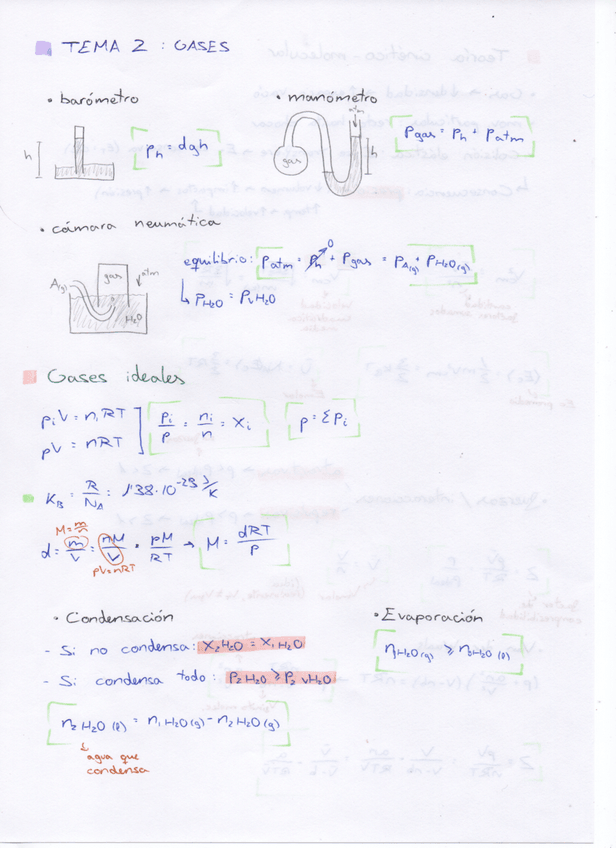 TEMA 2 : GASES
• barómetro
• manómetro
h
Ph = dgh
gas
atm
h
Pgas = Ph + Patm
• cámara neumática
A(g)
gas
atm
H2O
equilibrio: Patm = Ph→0 + Pgas = PA(g) + PH2O(g)
↳ PH2O = PvH2O
Gases ideales
piV = niRT
pV = nRT
pi/p = ni/n = Xi
p = ΣPi
KB = R/NA = 1'38·10^-23 J/K
M = m/n
d = m/V = nM/V = pM/RT → M = dRT/P
pV=nRT
• Condensación
• Evaporación
- Si no condensa: X2H2O = X1H2O
- Si condensa todo: P2H2O ≥ P2vH2O
n2H2O(l) = n1H2O(g) - n2H2O(g)
agua que
condensa